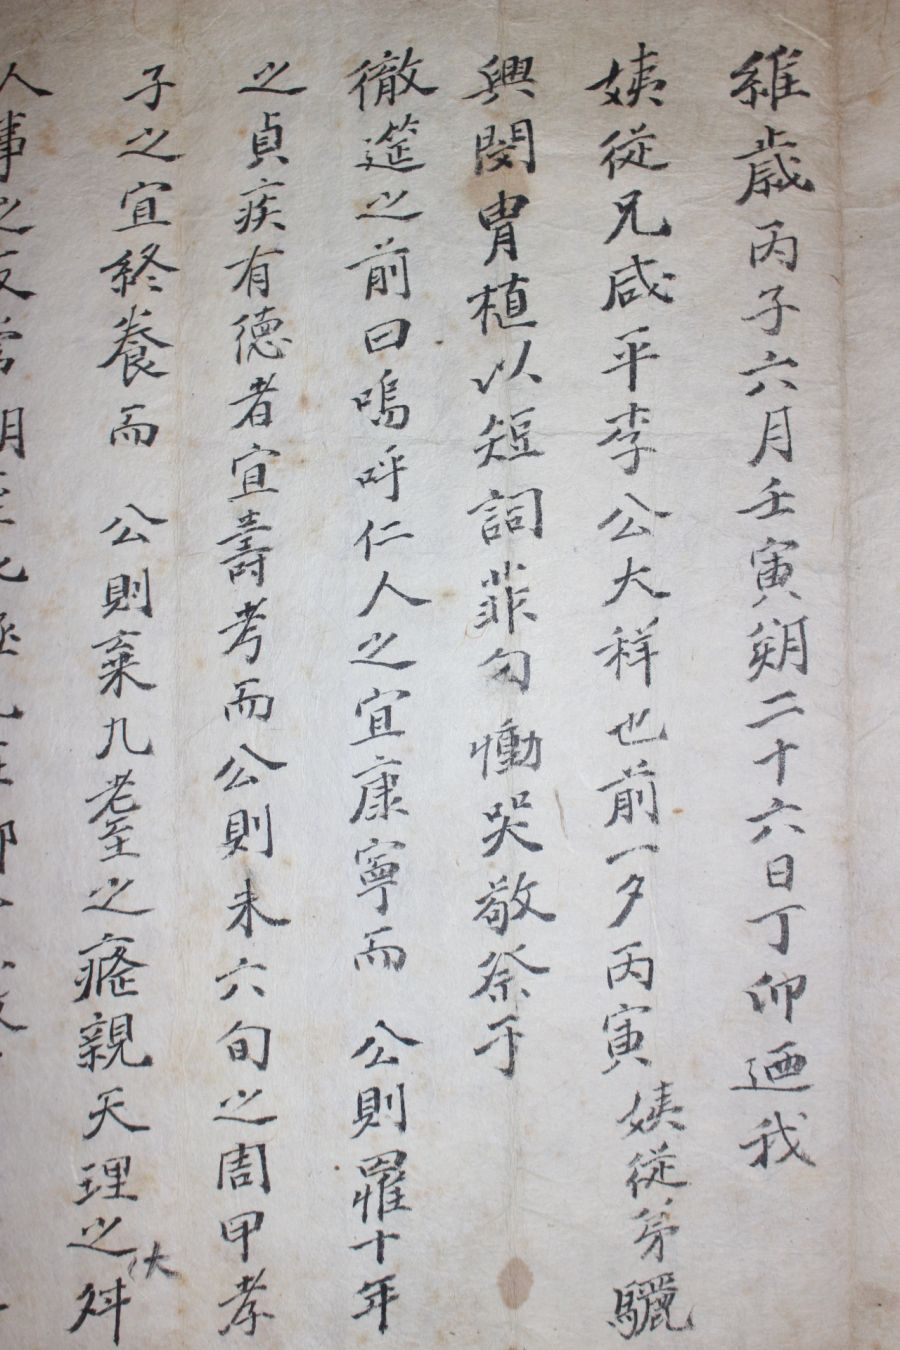 維歲丙子六月壬寅朔二十六日丁卯廼我
姨從兄咸平李公大祥也前一夕丙寅姨從弟驪
興閔胄植以短詞菲勻慟哭敬祭于
徹筵之前曰嗚呼仁人之宜康寧而 公則罹十年
之貞疾有德者宜壽考而公則未六旬之周甲孝
子之宜終養而 公則棄九耋之癃親天理之舛
人事之反常胡至此極